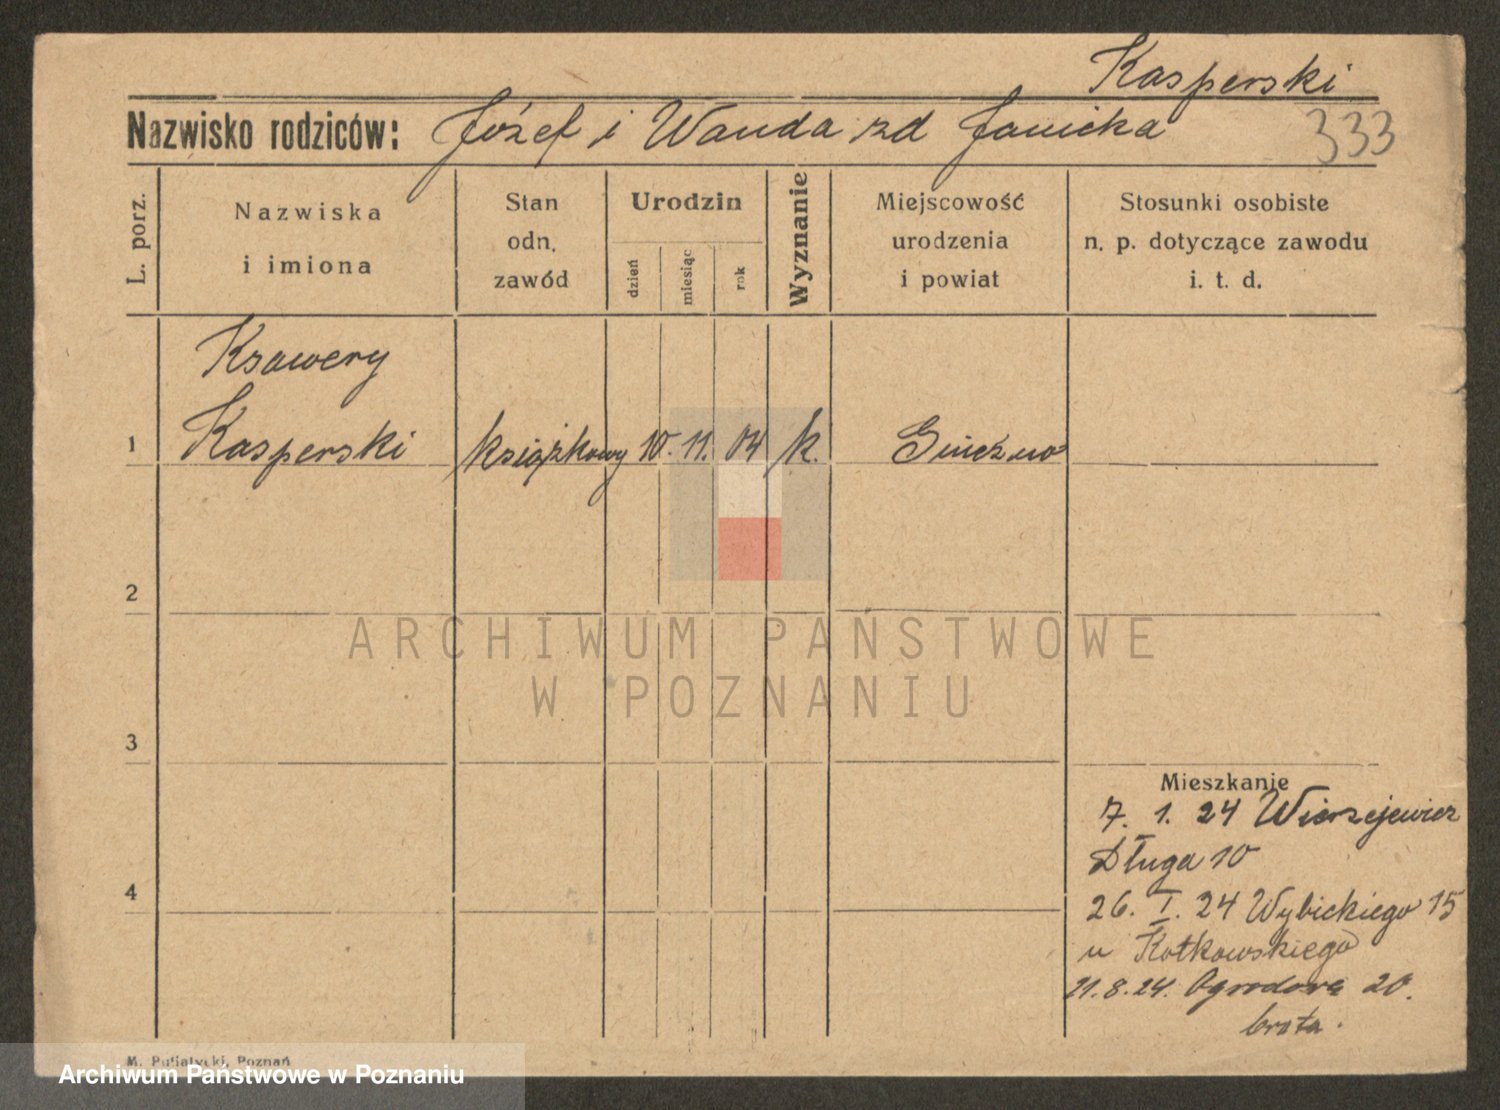 Kasperski
Nazwisko rodziców: Józef i Wanda zd Janicka
333
L. porz.
Nazwiska
i imiona
Stan
odn.
zawód
Urodzin
dzień
miesiąc
rok
Wyznanie
Miejscowość
urodzenia
i powiat
Stosunki osobiste
n. p. dotyczące zawodu
i. t. d.
Ksawery
1 Kasperski książkowy 10. 11. 04 k. Gniezno
2
ARCHIWUM PAŃSTWOWE
W POZNANIU
3
Mieszkanie
7. 1. 24 Wierzejewicz
Długa 10
4
26. I. 24 Wybickiego 15
u Kotkowskiego
21.8.24. Ogrodowa 20.
brata.
M. Putiatycki, Poznań
Archiwum Państwowe w Poznaniu